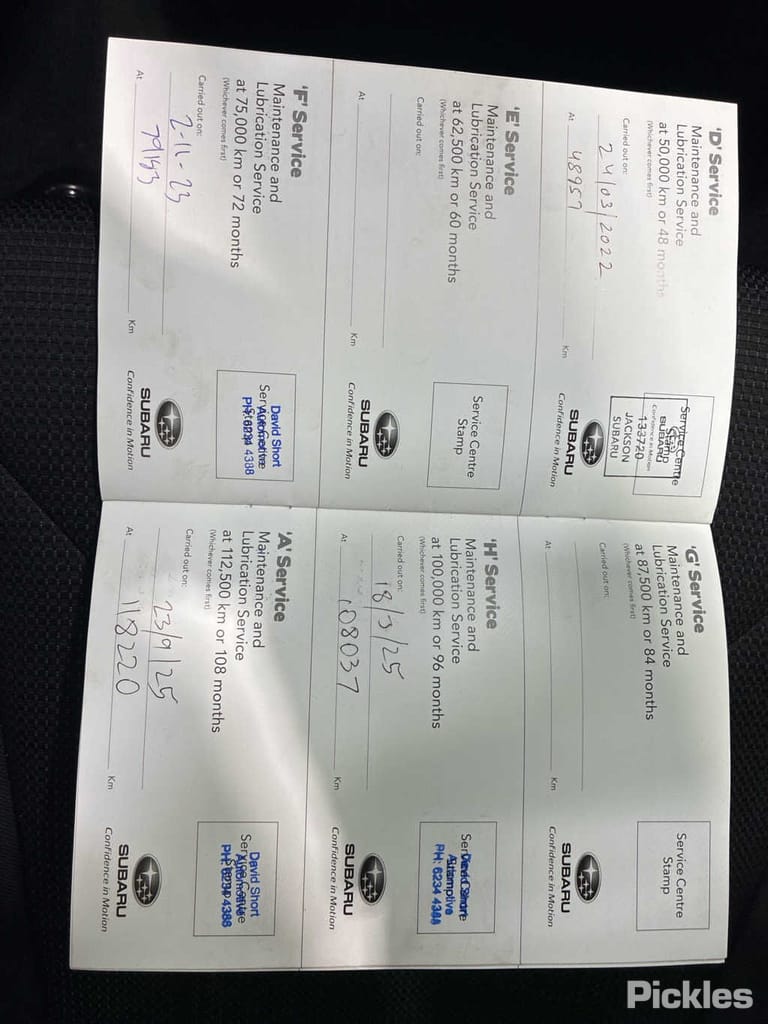 'D' Service
Maintenance and
Lubrication Service
at 50,000 km or 48 months
(Whichever comes first)
Carried out on:
24/03/2022
At 48957 Km
Service Centre
Stamp
SUBARU
Confidence in Motion
133720
JACKSON
SUBARU
SUBARU
Confidence in Motion
'E' Service
Maintenance and
Lubrication Service
at 62,500 km or 60 months
(Whichever comes first)
Carried out on:
At Km
Service Centre
Stamp
SUBARU
Confidence in Motion
'F' Service
Maintenance and
Lubrication Service
at 75,000 km or 72 months
(Whichever comes first)
Carried out on:
2-11-23
At Km
Service Centre
Stamp
David Short
Automotive
PH: 6234 4388
SUBARU
Confidence in Motion
'G' Service
Maintenance and
Lubrication Service
at 87,500 km or 84 months
(Whichever comes first)
Carried out on:
At Km
Service Centre
Stamp
SUBARU
Confidence in Motion
'H' Service
Maintenance and
Lubrication Service
at 100,000 km or 96 months
(Whichever comes first)
Carried out on:
18/3/25
At 108037 Km
Service Centre
Stamp
David Short
Automotive
PH: 6234 4388
SUBARU
Confidence in Motion
'A' Service
Maintenance and
Lubrication Service
at 112,500 km or 108 months
(Whichever comes first)
Carried out on:
23/9/25
At 118220 Km
Service Centre
Stamp
David Short
Automotive
PH: 6234 4388
SUBARU
Confidence in Motion
Pickles